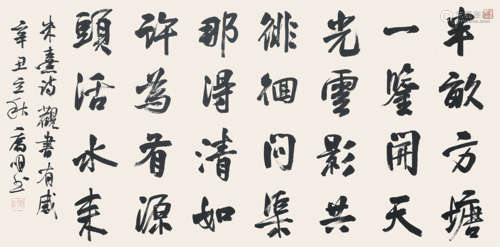 半畝方塘
一鑒開天
光雲影共
徘徊問渠
那得清如
許為有源
頭活水来
朱熹诗觀書有感
辛丑立秋